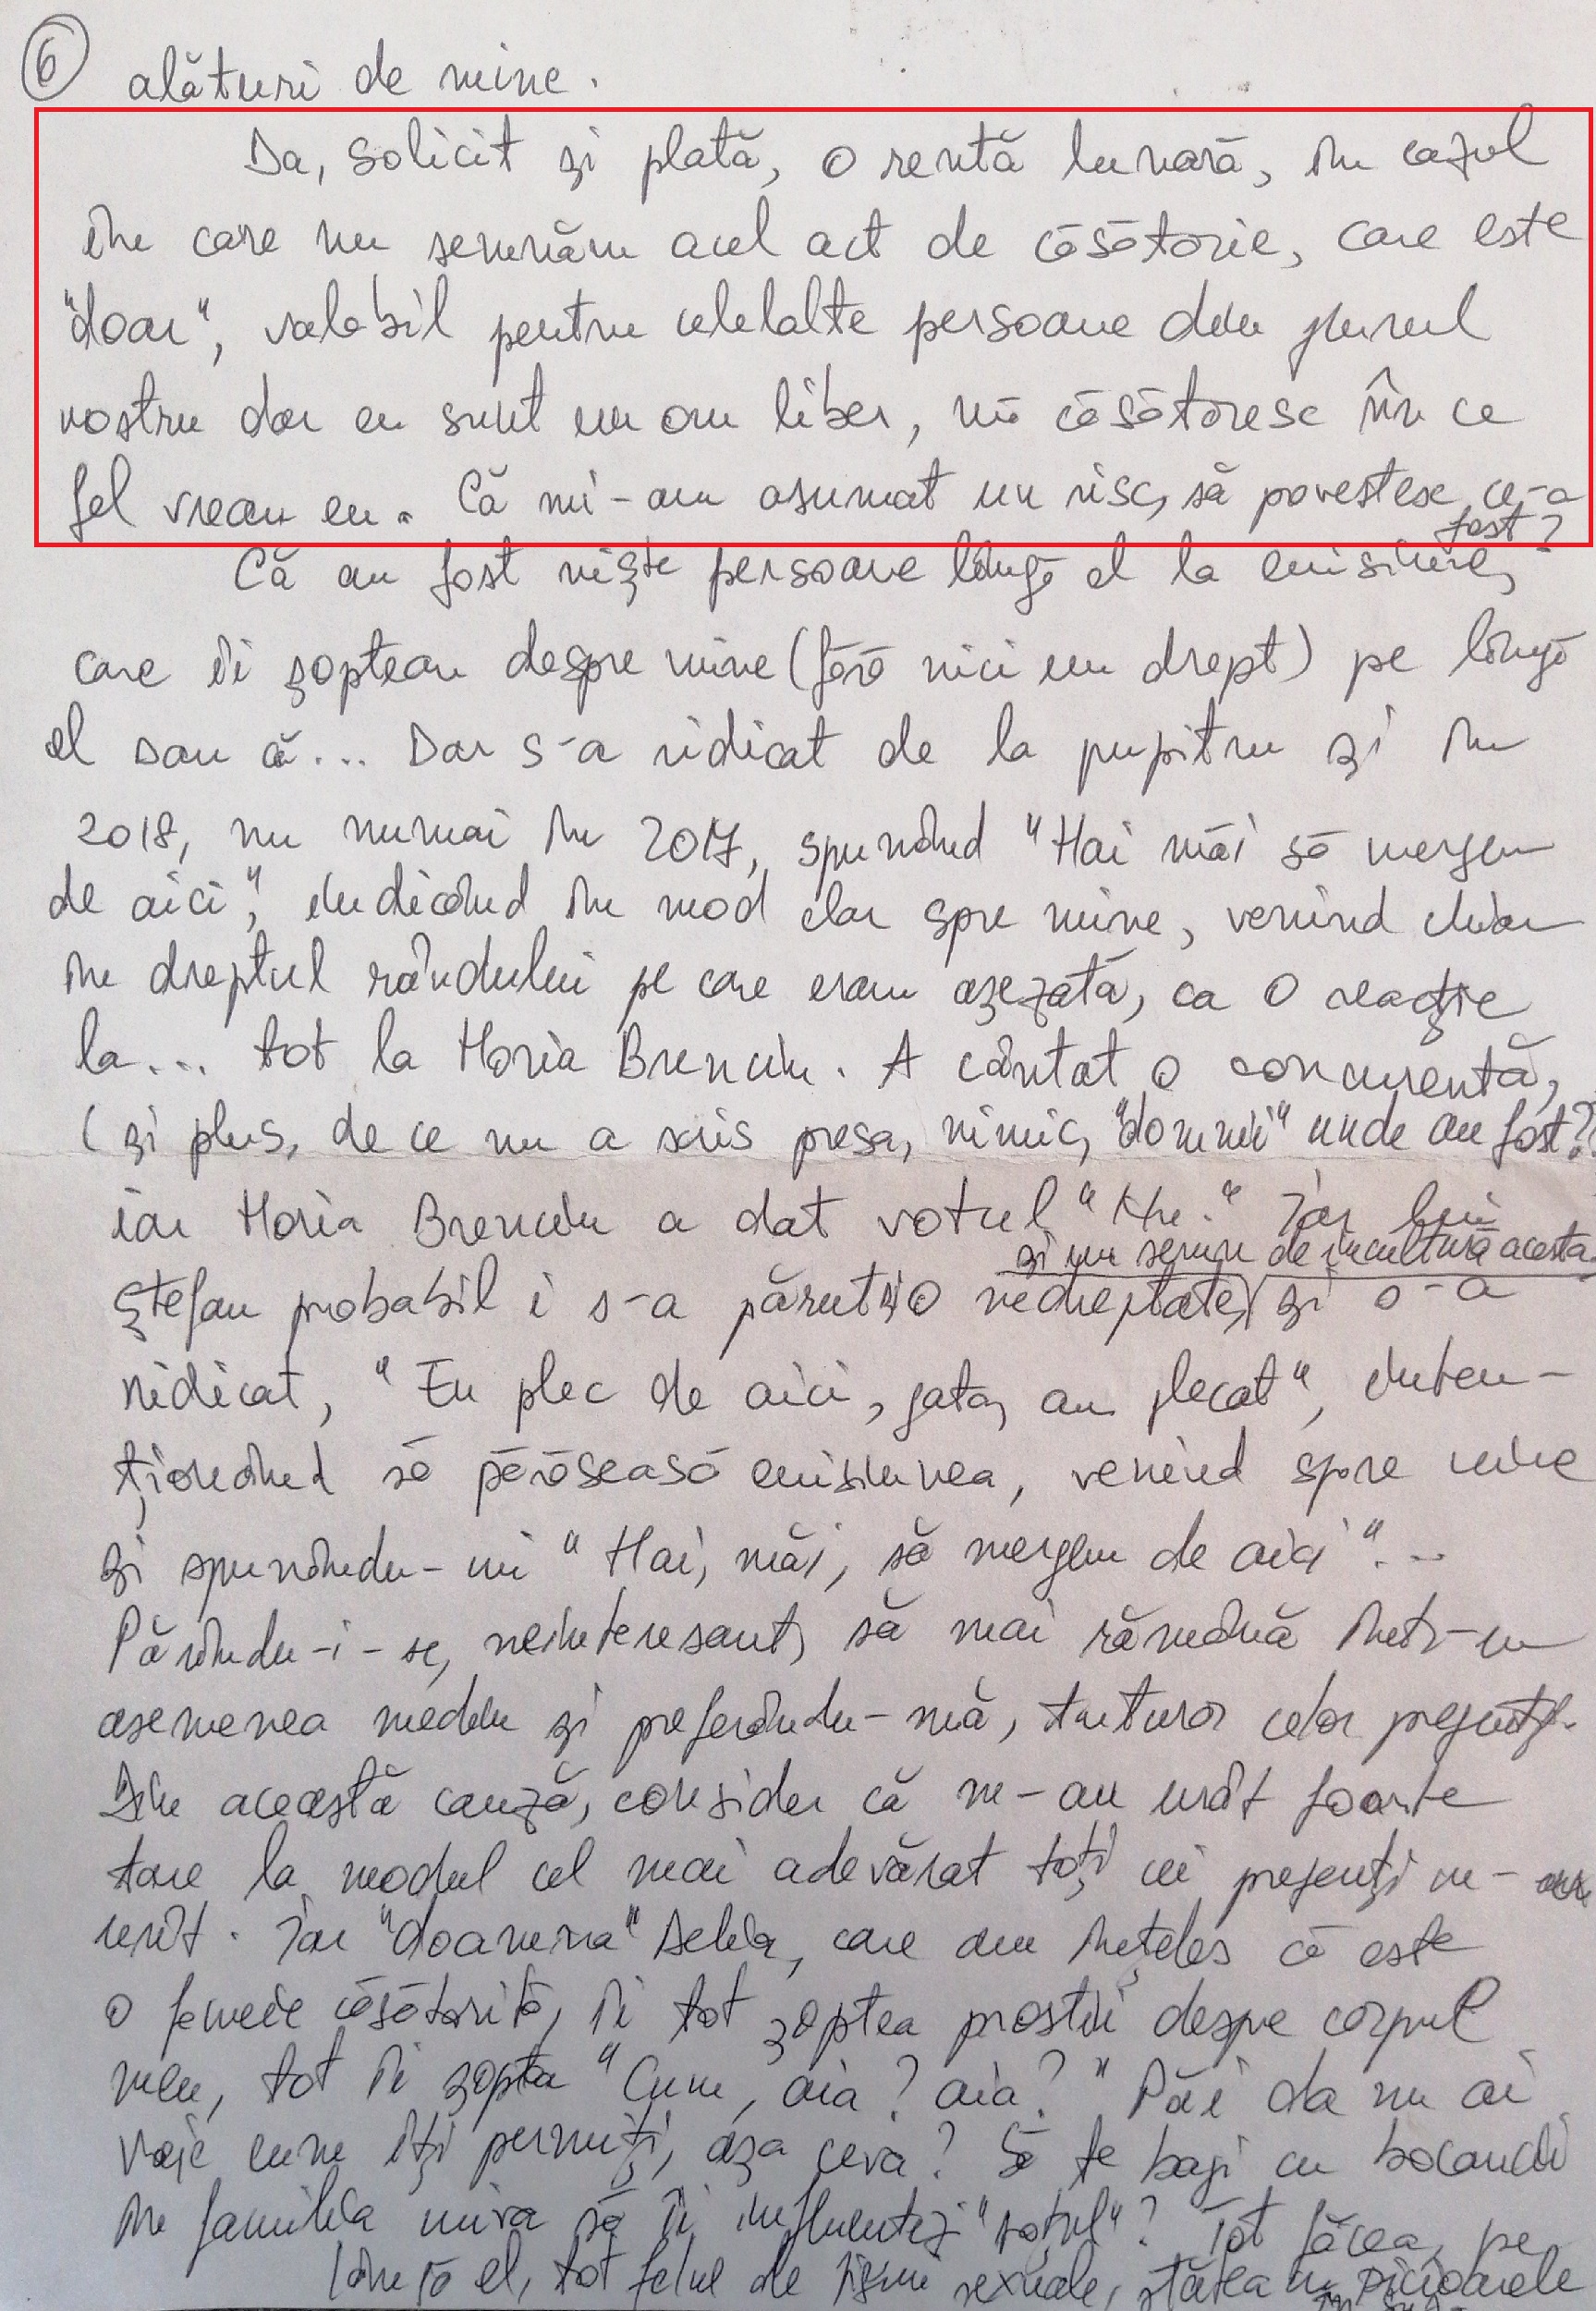 6 alături de mine.
Da, solicit și plată, o rentă lunară, în cazul
în care nu semnăm acel act de căsătorie, care este
"doar", valabil pentru celelalte persoane din jurul
nostru dar eu sunt un om liber, mă căsătoresc în ce
fel vreau eu. Că mi-am asumat un risc, să povestesc ce-a
fost?
Că au fost niște persoane lângă el la emisiune,
care îi șopteau despre mine (fără nici un drept) pe lângă
el sau că... Dar s-a ridicat de la pupitru și în
2018, nu numai în 2017, spunând "Hai măi să mergem
de aici", indicând în mod clar spre mine, venind chiar
în dreptul rândului pe care eram așezată, ca o reacție
la... tot la Horia Brenciu. A cântat o concurentă,
(și plus, de ce nu a scris presa, nimic, "domnii" unde au fost?
iar Horia Brenciu a dat votul "Nu." Iar lui
și un semn de incultură acesta
Ștefan probabil i s-a părut și o nedreptate, și s-a
ridicat, "Eu plec de aici, gata, am plecat", inten-
ționând să părăsească emisiunea, venind spre mine
și spunându-mi "Hai, măi, să mergem de aici"...
Părându-i-se, neinteresant, să mai rămână într-un
asemenea mediu și preferându-mă, tuturor celor prezenți.
Din această cauză, consider că ne-au urât foarte
tare la modul cel mai adevărat toți cei prezenți ne-au
urât. Iar "doamna" Delia, care am înțeles că este
o femeie căsătorită, îi tot șoptea prostii despre corpul
meu, tot îi șoptea "Cum, aia? aia?" Păi da nu ai
voie cum îți permiți, așa ceva? Să te bagi cu bocancii
în familia mira să îi influențezi "soțul"? Tot făcea, pe
lângă el, tot felul de sexuale, stătea picioarele